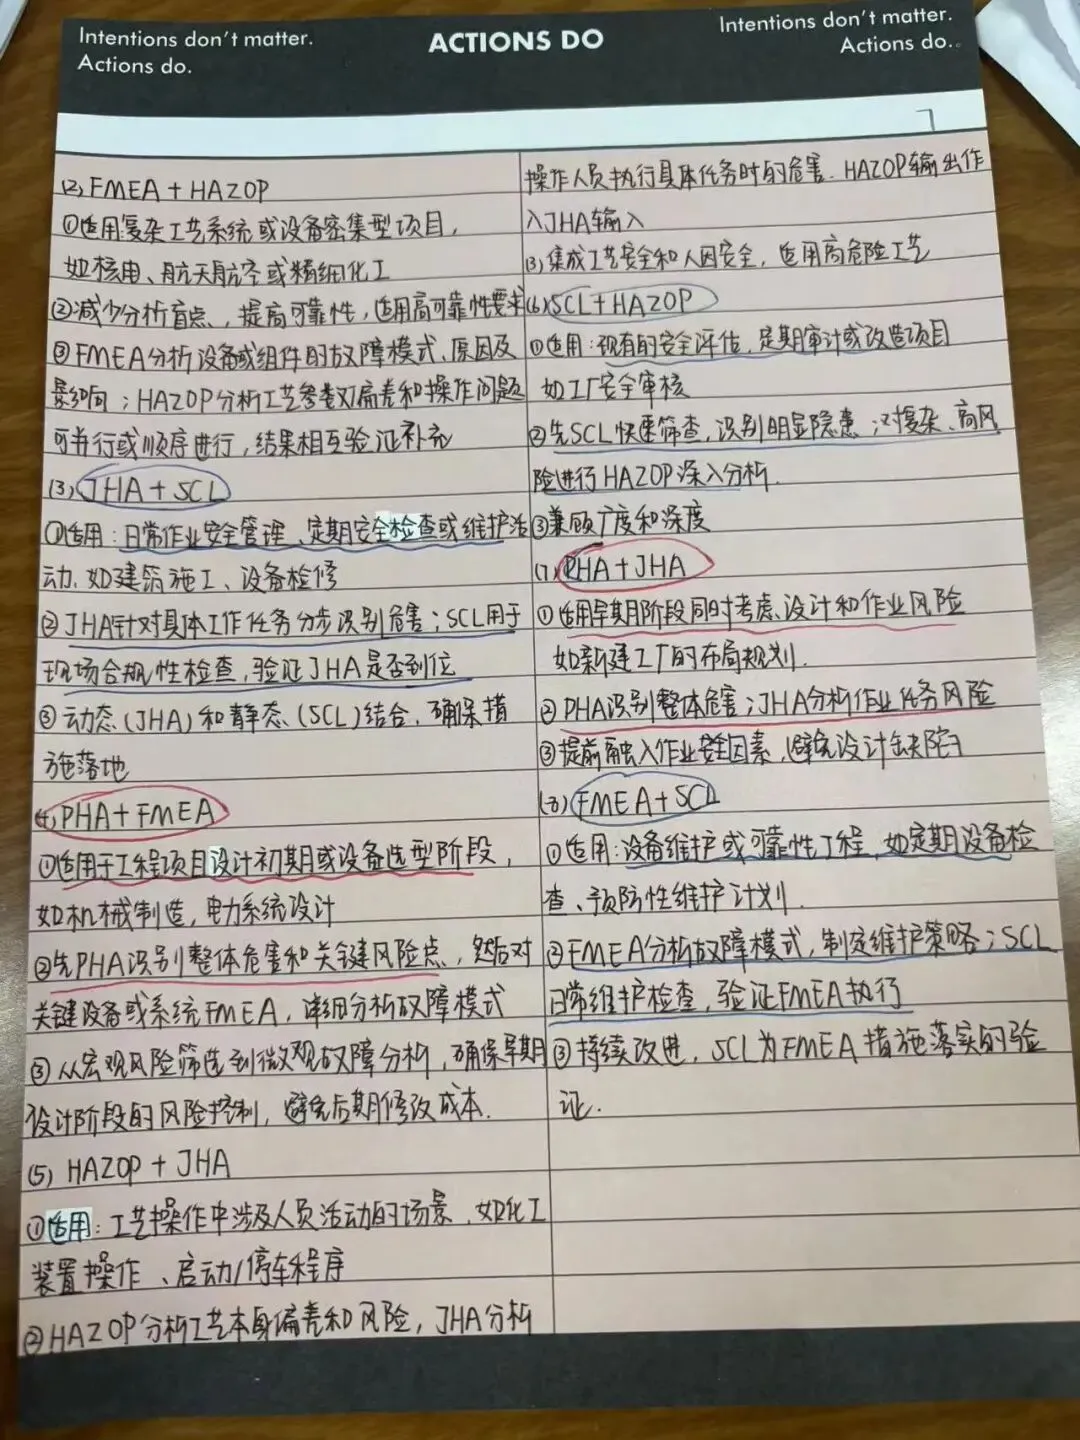 Intentions don't matter.
Actions do.
ACTIONS DO
Intentions don't matter.
Actions do.
7
(2) FMEA + HAZOP
①适用复杂工艺系统或设备密集型项目，
如核电、航天航空或精细化工
②减少分析盲点，提高可靠性，适用高可靠性要求
③FMEA分析设备或组件的故障模式、原因及
影响；HAZOP分析工艺参数对偏差和操作问题
可并行或顺序进行，结果相互验证补充
(3) JHA + SCL
①适用：日常作业安全管理、定期安全检查或维护活
动，如建筑施工、设备检修
②JHA针对具体工作任务分步识别危害；SCL用于
现场合规性检查，验证JHA是否到位
③动态(JHA)和静态(SCL)结合，确保措
施落地
(4) PHA + FMEA
①适用于工程项目设计初期或设备选型阶段，
如机械制造，电力系统设计
②先PHA识别整体危害和关键风险点，然后对
关键设备或系统FMEA，详细分析故障模式
③从宏观风险筛选到微观故障分析，确保早期
设计阶段的风险控制，避免后期修改成本.
(5) HAZOP + JHA
①适用：工艺操作中涉及人员活动的场景，如化工
装置操作、启动/停车程序
②HAZOP分析工艺本身偏差和风险，JHA分析
操作人员执行具体任务时的危害. HAZOP输出作
入JHA输入
(3) 集成工艺安全和人因安全，适用高危险工艺
(6) SCL + HAZOP
①适用：现有的安全评估，定期审计或改造项目
如工厂安全审核
②先SCL快速筛查，识别明显隐患；对复杂、高风
险进行HAZOP深入分析.
③兼顾广度和深度
(7) PHA + JHA
①适用早期阶段同时考虑设计和作业风险
如新建工厂的布局规划.
②PHA识别整体危害；JHA分析作业任务风险
③提前融入作业安全因素，避免设计缺陷
(8) FMEA + SCL
①适用：设备维护或可靠性工程，如定期设备检
查、预防性维护计划.
②FMEA分析故障模式，制定维护策略；SCL
日常维护检查，验证FMEA执行
③持续改进，SCL为FMEA措施落实的验
证.